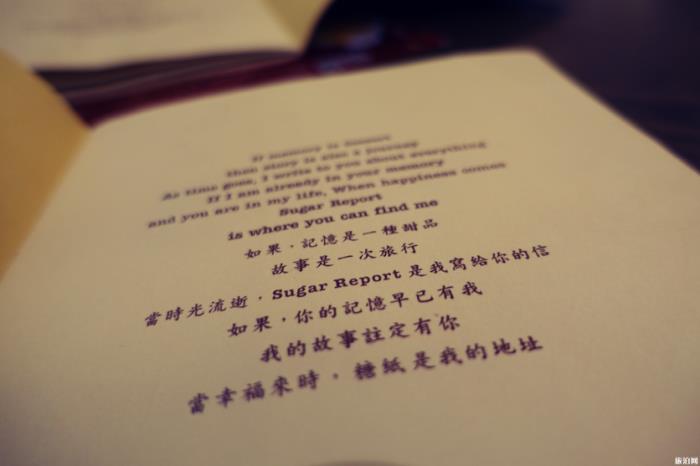 If memory is dessert
then story is also a journey
As time goes, I write to you about everything
If I am already in your memory
and you are in my life, When happiness comes
Sugar Report
is where you can find me
如果，記憶是一種甜品
故事是一次旅行
當時光流逝，Sugar Report 是我寫給你的信
如果，你的記憶早已有我
我的故事註定有你
當幸福來時，糖紙是我的地址
旅泊网